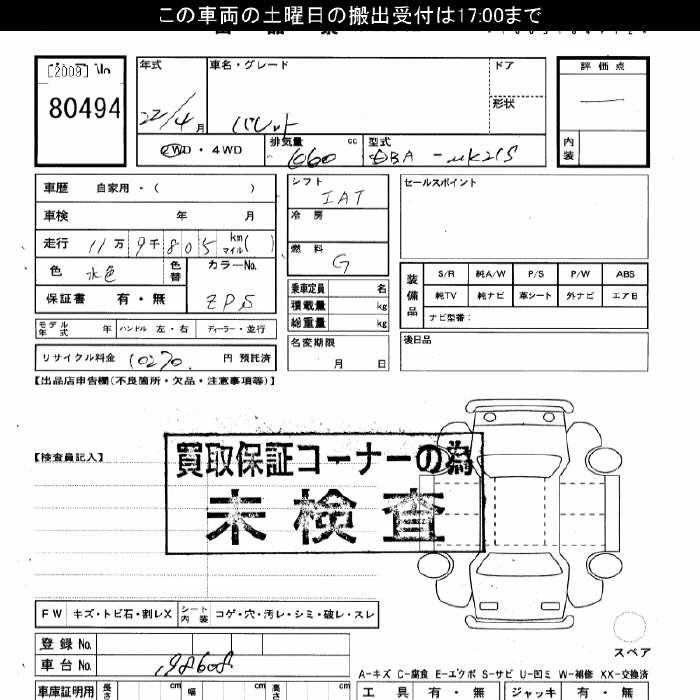 この車両の土曜日の搬出受付は17:00まで
[2009] No
80494
年式
22/4月
車名・グレード
パレット
ドア
形状
評価点
内装
2WD・4WD
排気量 660 cc
型式 DBA-MK21S
車歴 自家用・( )
車検 年 月
走行 11万9千805 km マイル( )
色 水色
色替
カラーNo.
ZPS
保証書 有・無
モデル年式 年 ハンドル 左・右 ディーラー・並行
リサイクル料金 10270 円 預託済
シフト
IAT
冷房
燃料
G
乗車定員 名
積載量 kg
総重量 kg
名変期限
月 日
セールスポイント
装備品
S/R 純A/W P/S P/W ABS
純TV 純ナビ 革シート 外ナビ エアB
ナビ型番:
後日品
【出品店申告欄(不良箇所・欠品・注意事項等)】
【検査員記入】
買取保証コーナーの為
未検査
FW キズ・トビ石・割レX シート内装 コゲ・穴・汚レ・シミ・破レ・スレ
スペア
登録No.
車台No. 198608
A-キズ C-腐食 E-エクボ S-サビ U-凹ミ W-補修 XX-交換済
車庫証明用 長さ cm 幅 cm 高さ cm
工具 有・無 ジャッキ 有・無